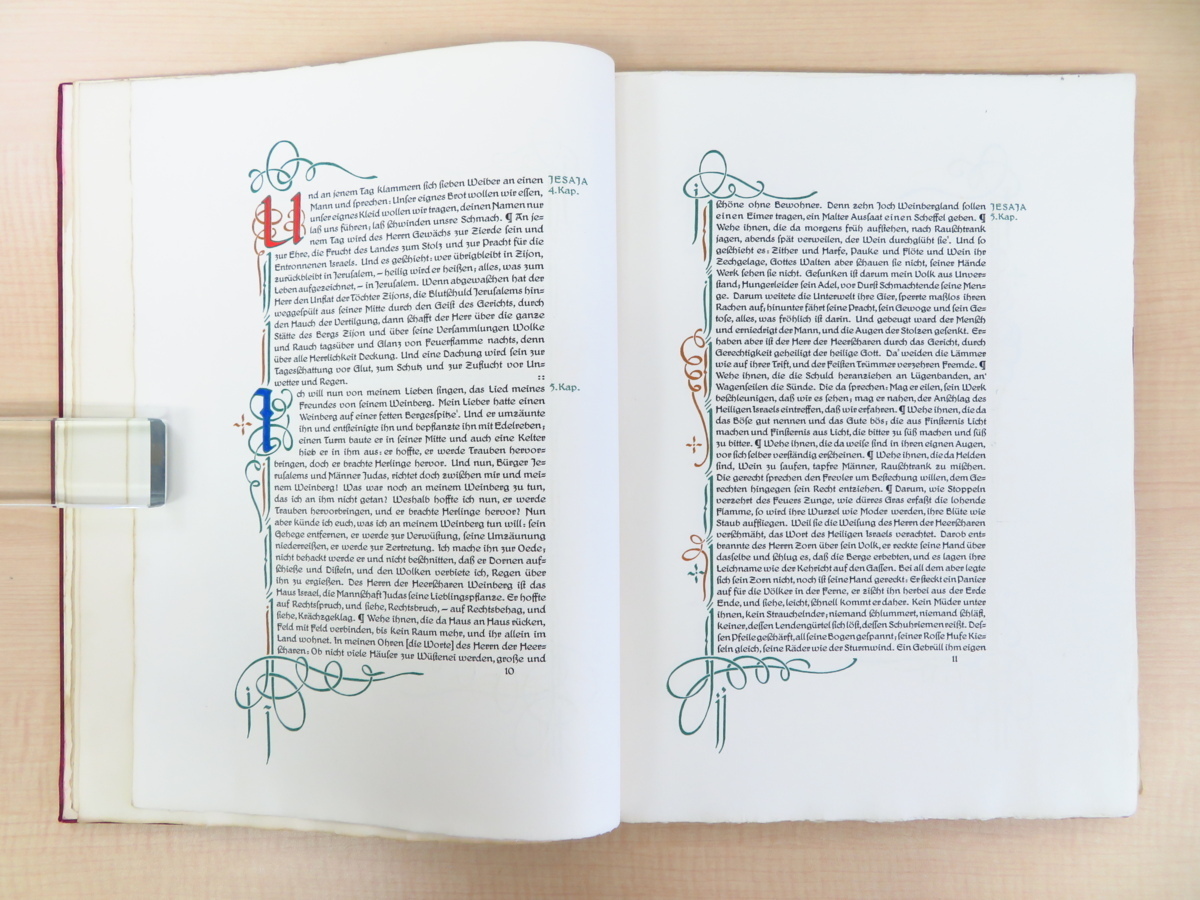 Und an jenem Tag klammern sich sieben Weiber an einen
JESAJA
4.Kap.
Mann und sprechen: Unser eignes Brot wollen wir essen,
unser eignes Kleid wollen wir tragen, deinen Namen nur
laß uns führen; laß schwinden unsre Schmach. ¶ An je-
nem Tag wird des Herrn Gewächs zur Zierde sein und
zur Ehre, die Frucht des Landes zum Stolz und zur Pracht für die
Entronnenen Israels. Und es geschieht: wer übrigbleibt in Zijon,
zurückbleibt in Jerusalem, – heilig wird er heißen; alles, was zum
Leben aufgezeichnet, – in Jerusalem. Wenn abgewaschen hat der
Herr den Unflat der Töchter Zijons, die Blutschuld Jerusalems hin-
weggespült aus seiner Mitte durch den Geist des Gerichts, durch
den Hauch der Vertilgung, dann schafft der Herr über die ganze
Stätte des Bergs Zijon und über seine Versammlungen Wolke
und Rauch tagsüber und Glanz von Feuerflamme nachts, denn
über alle Herrlichkeit Deckung. Und eine Dachung wird sein zur
Tagesschattung vor Glut, zum Schutz und zur Zuflucht vor Un-
wetter und Regen. ::
Ich will nun von meinem Lieben singen, das Lied meines
5.Kap.
Freundes von seinem Weinberg. Mein Lieber hatte einen
Weinberg auf einer fetten Bergesspitze'. Und er umzäunte
ihn und entsteinigte ihn und bepflanzte ihn mit Edelreben;
einen Turm baute er in seiner Mitte und auch eine Kelter
hieb er in ihm aus: er hoffte, er werde Trauben hervor-
bringen, doch er brachte Herlinge hervor. Und nun, Bürger Je-
rusalems und Männer Judas, richtet doch zwischen mir und mei-
nem Weinberg! Was war noch an meinem Weinberg zu tun,
das ich an ihm nicht getan? Weshalb hoffte ich nun, er werde
Trauben hervorbringen, und er brachte Herlinge hervor? Nun
aber künde ich euch, was ich an meinem Weinberg tun will: sein
Gehege entfernen, er werde zur Verwüstung, seine Umzäunung
niederreißen, er werde zur Zertretung. Ich mache ihn zur Oede;
nicht behackt werde er und nicht beschnitten, daß er Dornen auf-
schieße und Disteln, und den Wolken verbiete ich, Regen über
ihn zu ergießen. Des Herrn der Heerscharen Weinberg ist das
Haus Israel, die Mannschaft Judas seine Lieblingspflanze. Er hoffte
auf Rechtsspruch, und siehe, Rechtsbruch, – auf Rechtsbehag, und
siehe, Krächzgeklag. ¶ Wehe ihnen, die da Haus an Haus rücken,
Feld mit Feld verbinden, bis kein Raum mehr, und ihr allein im
Land wohnet. In meinen Ohren [die Worte] des Herrn der Heer-
scharen: Ob nicht viele Häuser zur Wüstenei werden, große und
10
schöne ohne Bewohner. Denn zehn Joch Weinbergland sollen
JESAJA
5.Kap.
einen Eimer tragen, ein Malter Aussaat einen Scheffel geben. ¶
Wehe ihnen, die da morgens früh aufstehen, nach Rauschtrank
jagen, abends spät verweilen, der Wein durchglüht sie'. Und so
geschieht es: Zither und Harfe, Pauke und Flöte und Wein ihr
Zechgelage, Gottes Walten aber schauen sie nicht, seiner Hände
Werk sehen sie nicht. Gesunken ist darum mein Volk aus Unver-
stand; Hungerleider sein Adel, vor Durst Schmachtende seine Men-
ge. Darum weitete die Unterwelt ihre Gier, sperrte maßlos ihren
Rachen auf; hinunter fährt seine Pracht, sein Gewoge und sein Ge-
tose, alles, was fröhlich ist darin. Und gebeugt ward der Mensch
und erniedrigt der Mann, und die Augen der Stolzen gesenkt. Er-
haben aber ist der Herr der Heerscharen durch das Gericht, durch
Gerechtigkeit geheiligt der heilige Gott. Da' weiden die Lämmer
wie auf ihrer Trift, und der Feisten Trümmer verzehren Fremde. ¶
Wehe ihnen, die die Schuld heranziehen an Lügenbanden, an'
Wagenseilen die Sünde. Die da sprechen: Mag er eilen, sein Werk
beschleunigen, daß wir es sehen; mag er nahen, der Anschlag des
Heiligen Israels eintreffen, daß wir erfahren. ¶ Wehe ihnen, die da
das Böse gut nennen und das Gute bös; die aus Finsternis Licht
machen und Finsternis aus Licht, die bitter zu süß machen und süß
zu bitter. ¶ Wehe ihnen, die da weise sind in ihren eignen Augen,
vor sich selber verständig erscheinen. ¶ Wehe ihnen, die da Helden
sind, Wein zu saufen, tapfre Männer, Rauschtrank zu mischen.
Die gerecht sprechen den Frevler um Bestechung willen, dem Ge-
rechten hingegen sein Recht entziehen. ¶ Darum, wie Stoppeln
verzehrt des Feuers Zunge, wie dürres Gras erfaßt die lohende
Flamme, so wird ihre Wurzel wie Moder werden, ihre Blüte wie
Staub auffliegen. Weil sie die Weisung des Herrn der Heerscharen
verschmäht, das Wort des Heiligen Israels verachtet. Darob ent-
brannte des Herrn Zorn über sein Volk, er reckte seine Hand über
dasselbe und schlug es, daß die Berge erbebten, und es lagen ihre
Leichname wie der Kehricht auf den Gassen. Bei all dem aber legte
sich sein Zorn nicht, noch ist seine Hand gereckt: Er steckt ein Panier
auf für die Völker in der Ferne, er zischt ihn herbei aus der Erde
Ende, und siehe, leicht, schnell kommt er daher. Kein Müder unter
ihnen, kein Strauchelnder; niemand schlummert, niemand schläft,
keiner, dessen Lendengürtel sich löst, dessen Schuhriemen reißt. Des-
sen Pfeile geschärft, all seine Bogen gespannt; seiner Rosse Hufe Kie-
seln gleich, seine Räder wie der Sturmwind. Ein Gebrüll ihm eigen
11